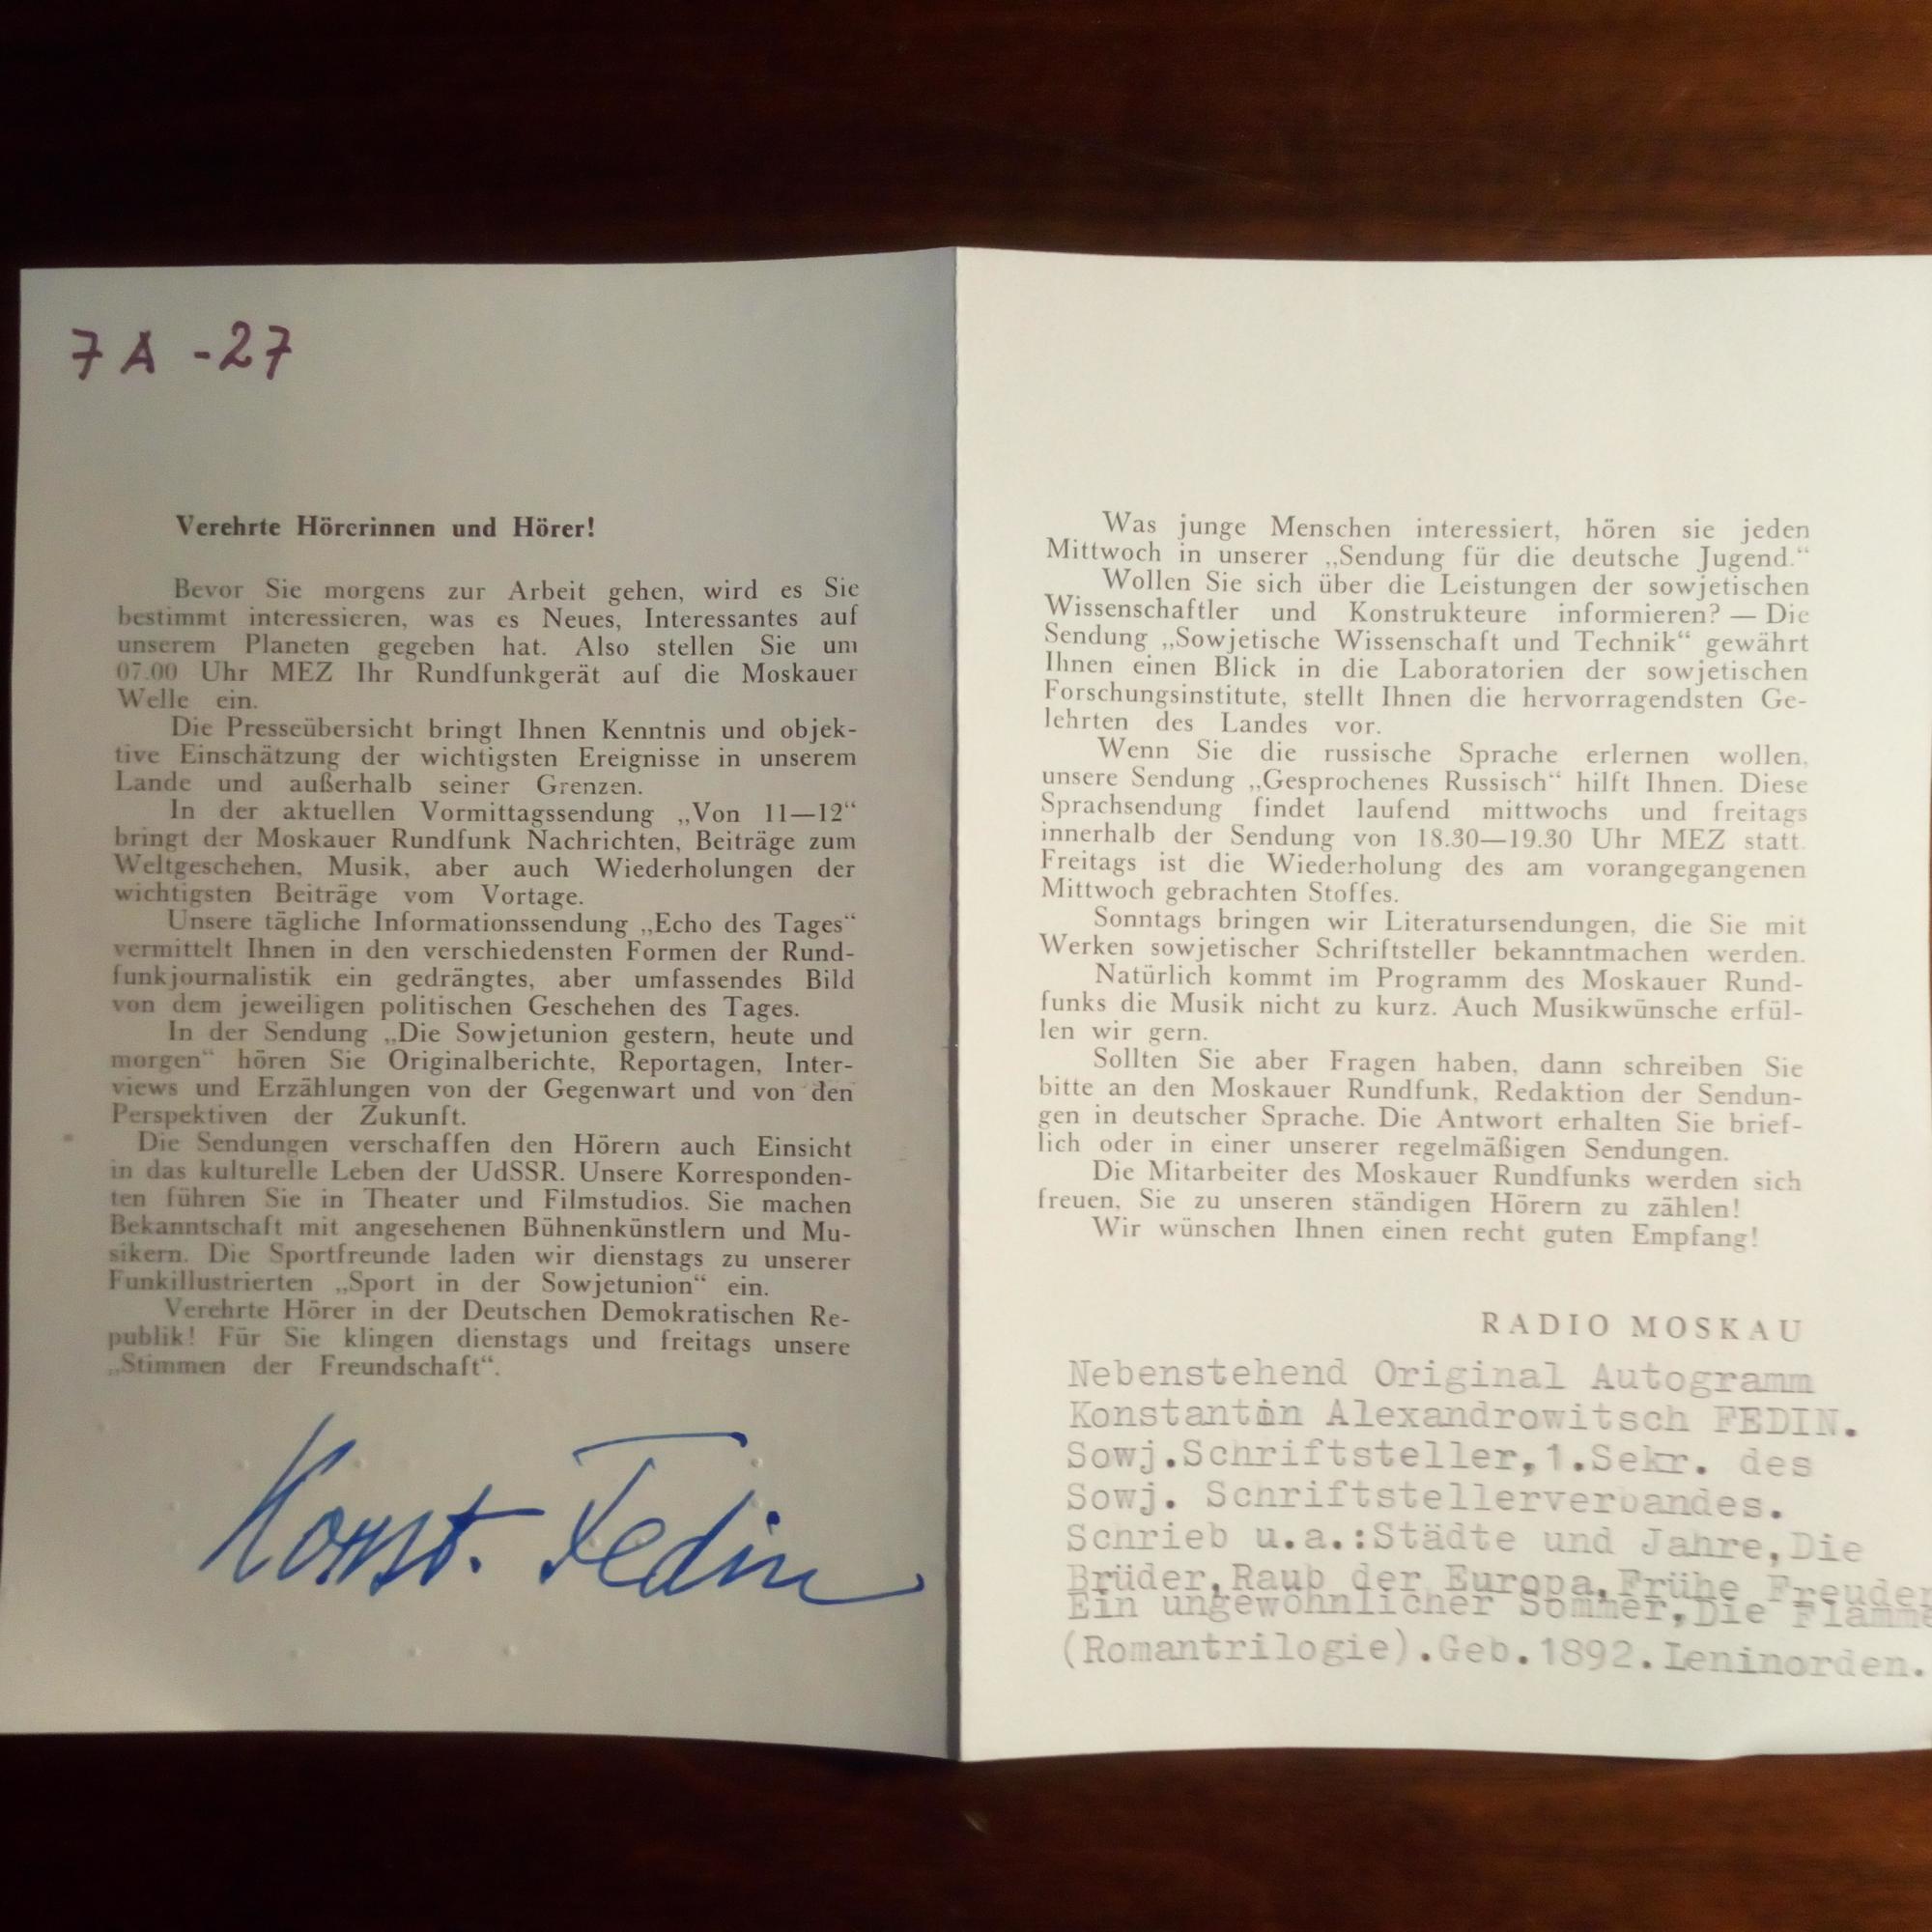 7 A - 27
Verehrte Hörerinnen und Hörer!
Bevor Sie morgens zur Arbeit gehen, wird es Sie
bestimmt interessieren, was es Neues, Interessantes auf
unserem Planeten gegeben hat. Also stellen Sie um
07.00 Uhr MEZ Ihr Rundfunkgerät auf die Moskauer
Welle ein.
Die Presseübersicht bringt Ihnen Kenntnis und objek-
tive Einschätzung der wichtigsten Ereignisse in unserem
Lande und außerhalb seiner Grenzen.
In der aktuellen Vormittagssendung „Von 11—12“
bringt der Moskauer Rundfunk Nachrichten, Beiträge zum
Weltgeschehen, Musik, aber auch Wiederholungen der
wichtigsten Beiträge vom Vortage.
Unsere tägliche Informationssendung „Echo des Tages“
vermittelt Ihnen in den verschiedensten Formen der Rund-
funkjournalistik ein gedrängtes, aber umfassendes Bild
von dem jeweiligen politischen Geschehen des Tages.
In der Sendung „Die Sowjetunion gestern, heute und
morgen“ hören Sie Originalberichte, Reportagen, Inter-
views und Erzählungen von der Gegenwart und von den
Perspektiven der Zukunft.
Die Sendungen verschaffen den Hörern auch Einsicht
in das kulturelle Leben der UdSSR. Unsere Korresponden-
ten führen Sie in Theater und Filmstudios. Sie machen
Bekanntschaft mit angesehenen Bühnenkünstlern und Mu-
sikern. Die Sportfreunde laden wir dienstags zu unserer
Funkillustrierten „Sport in der Sowjetunion“ ein.
Verehrte Hörer in der Deutschen Demokratischen Re-
publik! Für Sie klingen dienstags und freitags unsere
„Stimmen der Freundschaft“.
Konst. Fedin
Was junge Menschen interessiert, hören sie jeden
Mittwoch in unserer „Sendung für die deutsche Jugend.“
Wollen Sie sich über die Leistungen der sowjetischen
Wissenschaftler und Konstrukteure informieren? — Die
Sendung „Sowjetische Wissenschaft und Technik“ gewährt
Ihnen einen Blick in die Laboratorien der sowjetischen
Forschungsinstitute, stellt Ihnen die hervorragendsten Ge-
lehrten des Landes vor.
Wenn Sie die russische Sprache erlernen wollen,
unsere Sendung „Gesprochenes Russisch“ hilft Ihnen. Diese
Sprachsendung findet laufend mittwochs und freitags
innerhalb der Sendung von 18.30—19.30 Uhr MEZ statt.
Freitags ist die Wiederholung des am vorangegangenen
Mittwoch gebrachten Stoffes.
Sonntags bringen wir Literatursendungen, die Sie mit
Werken sowjetischer Schriftsteller bekanntmachen werden.
Natürlich kommt im Programm des Moskauer Rund-
funks die Musik nicht zu kurz. Auch Musikwünsche erfül-
len wir gern.
Sollten Sie aber Fragen haben, dann schreiben Sie
bitte an den Moskauer Rundfunk, Redaktion der Sendun-
gen in deutscher Sprache. Die Antwort erhalten Sie brief-
lich oder in einer unserer regelmäßigen Sendungen.
Die Mitarbeiter des Moskauer Rundfunks werden sich
freuen, Sie zu unseren ständigen Hörern zu zählen!
Wir wünschen Ihnen einen recht guten Empfang!
RADIO MOSKAU
Nebenstehend Original Autogramm
Konstantin Alexandrowitsch FEDIN.
Sowj.Schriftsteller,1.Sekr. des
Sowj. Schriftstellerverbandes.
Schrieb u.a.:Städte und Jahre,Die
Brüder,Raub der Europa,Frühe Freuden
Ein ungewöhnlicher Sommer,Die Flamme
(Romantrilogie).Geb.1892.Leninorden.